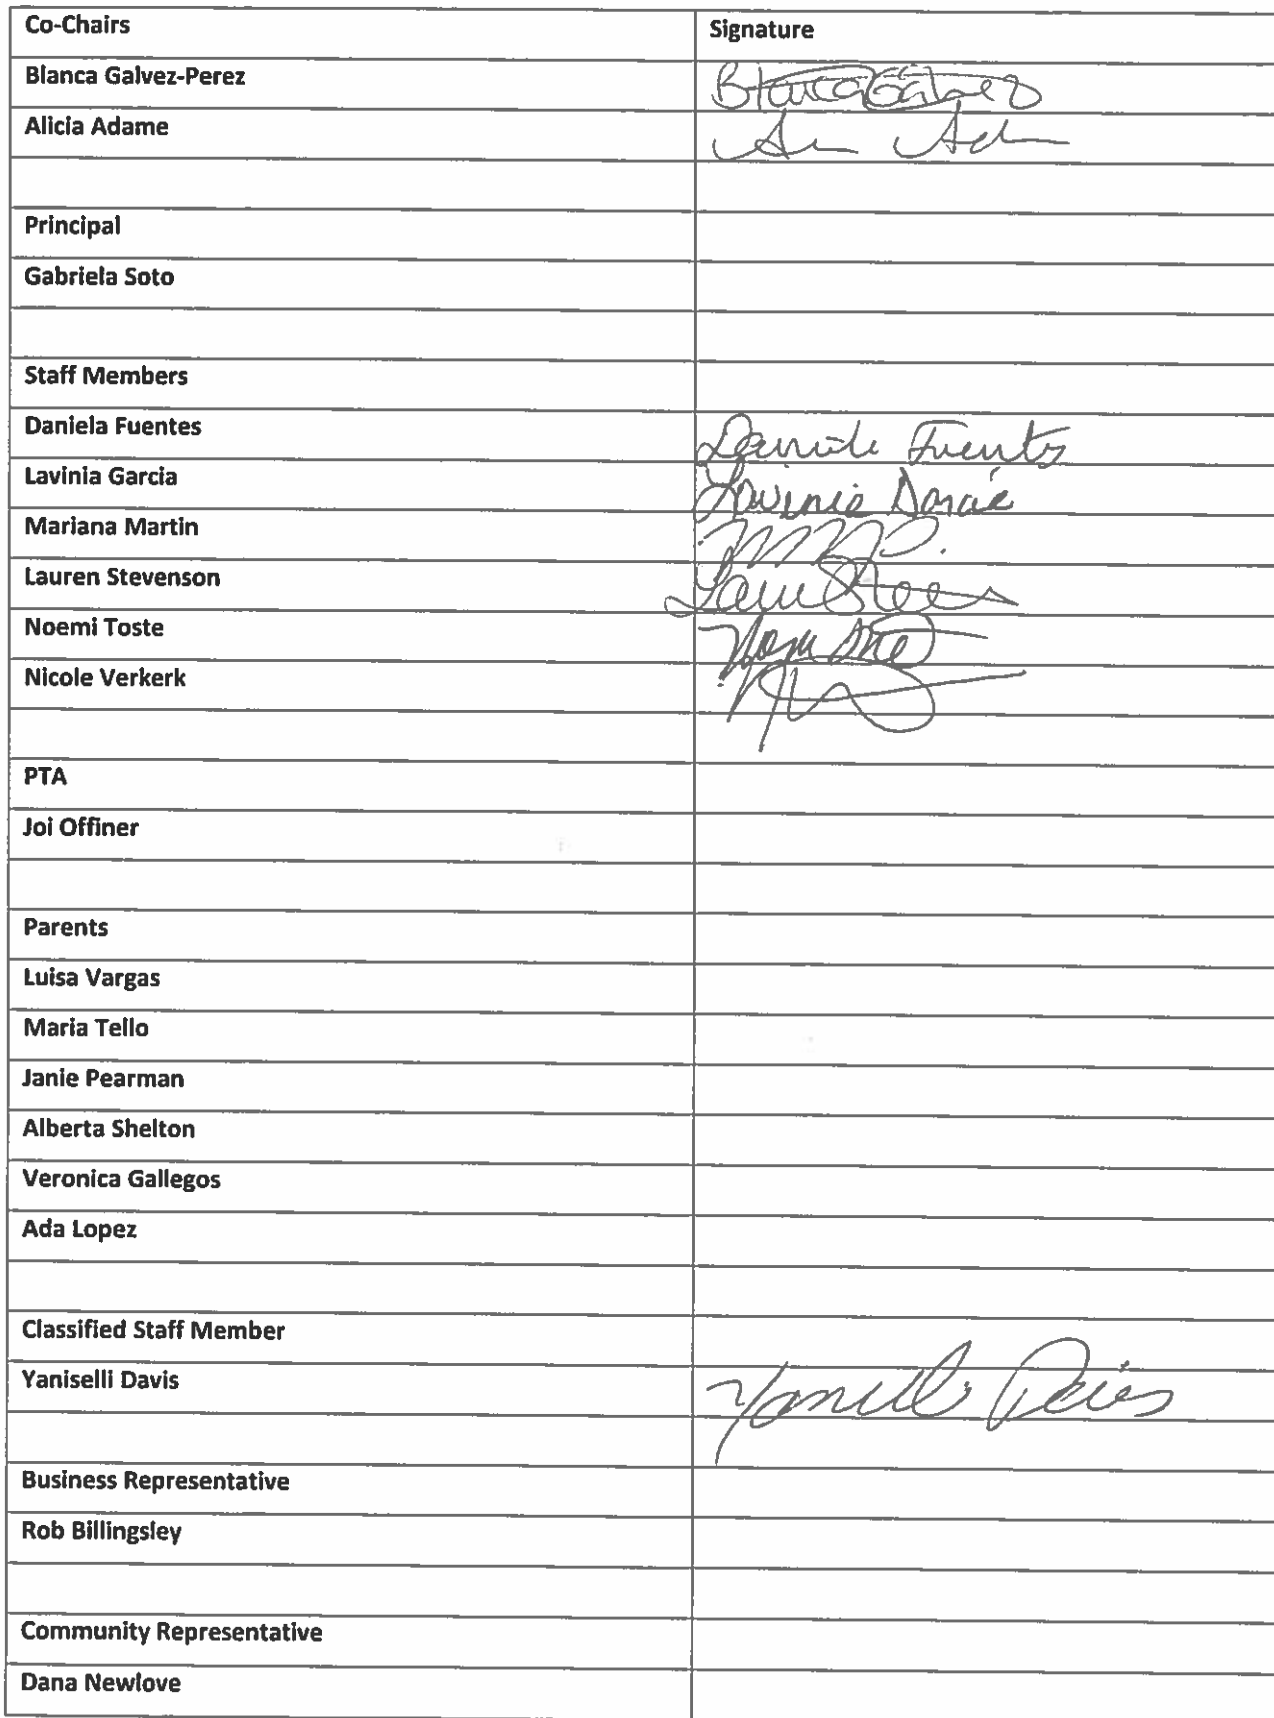 Co-Chairs Signature
Blanca Galvez-Perez Blanca Galvez
Alicia Adame
Principal
Gabriela Soto
Staff Members
Daniela Fuentes Daniela Fuentes
Lavinia Garcia Lavinia Garcia
Mariana Martin
Lauren Stevenson
Noemi Toste
Nicole Verkerk
PTA
Joi Offiner
Parents
Luisa Vargas
Maria Tello
Janie Pearman
Alberta Shelton
Veronica Gallegos
Ada Lopez
Classified Staff Member
Yaniselli Davis
Business Representative
Rob Billingsley
Community Representative
Dana Newlove